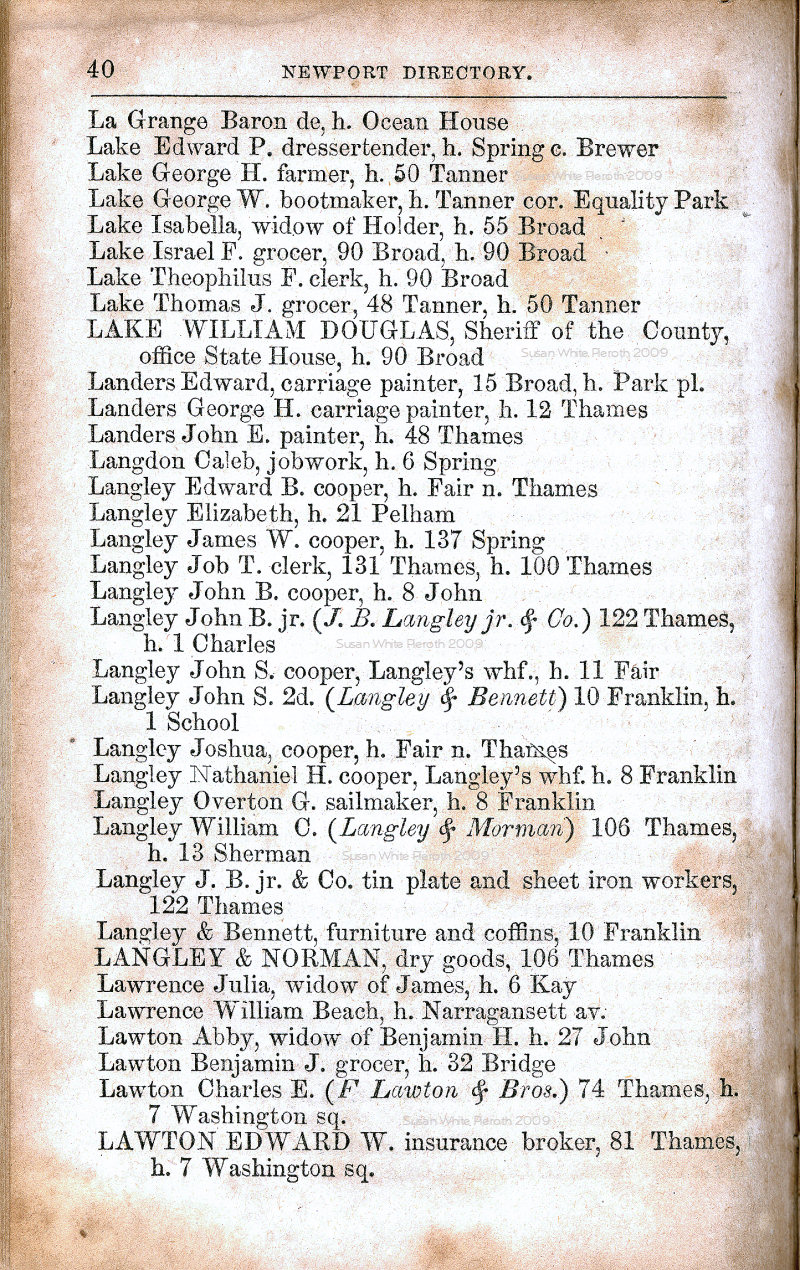 40
NEWPORT DIRECTORY.
La Grange Baron de, h. Ocean House
Lake Edward P. dressertender, h. Spring c. Brewer
Lake George H. farmer, h. 50 Tanner
Susan White Pieroth 2009
Lake George W. bootmaker, h. Tanner cor. Equality Park
Lake Isabella, widow of Holder, h. 55 Broad
Lake Israel F. grocer, 90 Broad, h. 90 Broad
Lake Theophilus F. clerk, h. 90 Broad
Lake Thomas J. grocer, 48 Tanner, h. 50 Tanner
LAKE WILLIAM DOUGLAS, Sheriff of the County,
office State House, h. 90 Broad
Susan White Pieroth 2009
Landers Edward, carriage painter, 15 Broad, h. Park pl.
Landers George H. carriage painter, h. 12 Thames
Landers John E. painter, h. 48 Thames
Langdon Caleb, jobwork, h. 6 Spring
Langley Edward B. cooper, h. Fair n. Thames
Langley Elizabeth, h. 21 Pelham
Langley James W. cooper, h. 137 Spring
Langley Job T. clerk, 131 Thames, h. 100 Thames
Langley John B. cooper, h. 8 John
Langley John B. jr. (J. B. Langley jr. & Co.) 122 Thames,
h. 1 Charles
Susan White Pieroth 2009
Langley John S. cooper, Langley's whf., h. 11 Fair
Langley John S. 2d. (Langley & Bennett) 10 Franklin, h.
1 School
Langley Joshua, cooper, h. Fair n. Thames
Langley Nathaniel H. cooper, Langley's whf. h. 8 Franklin
Langley Overton G. sailmaker, h. 8 Franklin
Langley William C. (Langley & Morman) 106 Thames,
h. 13 Sherman
Susan White Pieroth 2009
Langley J. B. jr. & Co. tin plate and sheet iron workers,
122 Thames
Langley & Bennett, furniture and coffins, 10 Franklin
LANGLEY & NORMAN, dry goods, 106 Thames
Lawrence Julia, widow of James, h. 6 Kay
Lawrence William Beach, h. Narragansett av.
Lawton Abby, widow of Benjamin H. h. 27 John
Lawton Benjamin J. grocer, h. 32 Bridge
Lawton Charles E. (F Lawton & Bros.) 74 Thames, h.
7 Washington sq.
Susan White Pieroth 2009
LAWTON EDWARD W. insurance broker, 81 Thames,
h. 7 Washington sq.